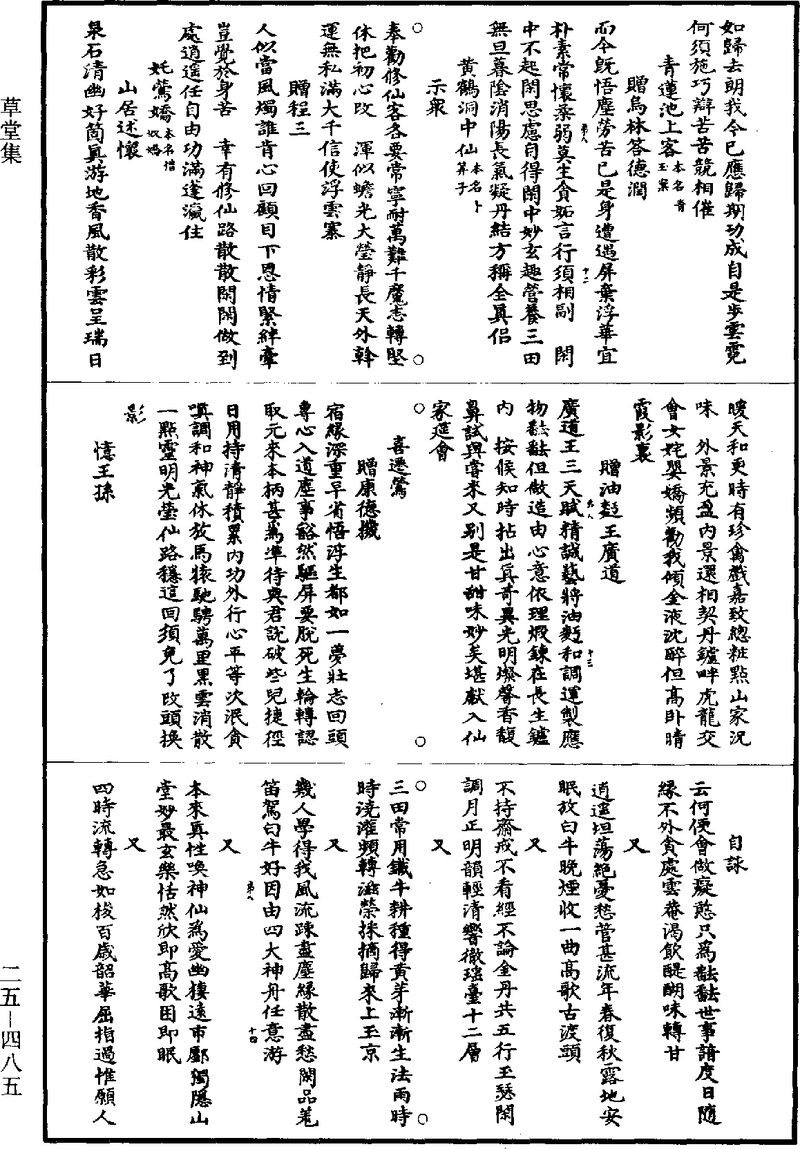 如歸去朗我今已應歸期功成自是步雲霓
何須施巧辯苦苦競相催
青蓮池上客本名青玉案
贈烏林答德潤
而今既悟塵勞苦已是身遭遇屏棄浮華宜
朴素常懷柔弱莫生貪妬言行須相副　閑
中不起閑思慮自得閑中妙玄趣營養三田
無旦暮陰消陽長氣凝丹結方稱全真侶
黃鶴洞中仙本名卜算子
示衆
奉勸修仙客各要常寧耐萬難千魔志轉堅
休把初心改　渾似蟾光大瑩靜長天外斡
運無私滿大千信使浮雲塞
贈程三
人似當風燭誰肯心回顧目下恩情緊絆牽
豈覺於身苦　幸有修仙路散散閑閑做到
處逍遙任自由功滿蓬瀛住
姹鶯嬌本名惜奴嬌
山居述懷
泉石清幽好箇真游地香風散彩雲呈瑞日
暖天和更時有珍禽戲嘉致總粧點山家況
味　外景充盈內景還相契丹鑪畔虎龍交
會女姹嬰嬌頻勸我傾金液沈醉但高臥晴
霞影裏
贈油麪王廣道
廣道王三天賦精誠藝將油麪和調運製應
物㪲㪲但做造由心意依理煅鍊在長生鑪
內　按候知時拈出真奇異光明燦馨香馥
鼻試與嘗來又別是甘甜味妙矣堪獻入仙
家筵會
喜遷鶯
贈康德機
宿緣深重早省悟浮生都如一夢壯志回頭
專心入道塵事豁然驅屏要脫死生輪轉認
取元來本柄甚爲準待與君說破些兒捷徑
日用持清靜積累內功外行心平等次泯貪
嗔調和神氣休放馬猿馳騁萬里黑雲消散
一點靈明光瑩仙路穩這回須免了改頭換
影
憶王孫
自詠
云何便會做癡憨只爲㪲㪲世事諳度日隨
緣不外貪處雲菴渴飲醍醐味轉甘
又
逍遙坦蕩絕憂愁管甚流年春復秋露地安
眠放白牛晚煙收一曲高歌古渡頭
又
不持齋戒不看經不論金丹共五行玉瑟閑
調月正明韻輕清響徹瑤臺十二層
又
三田常用鐵牛耕種得黃芽漸漸生法雨時
時澆灌頻轉滋榮採摘歸來上玉京
又
幾人學得我風流疎盡塵緣散盡愁閑品羌
笛駕白牛好因由四大神舟任意游
又
本來真性喚神仙爲愛幽棲遠市鄽獨隱山
堂妙最玄樂恬然欣即高歌困即眠
又
四時流轉急如梭百歲韶華屈指過惟願人
草堂集
二五—四八五